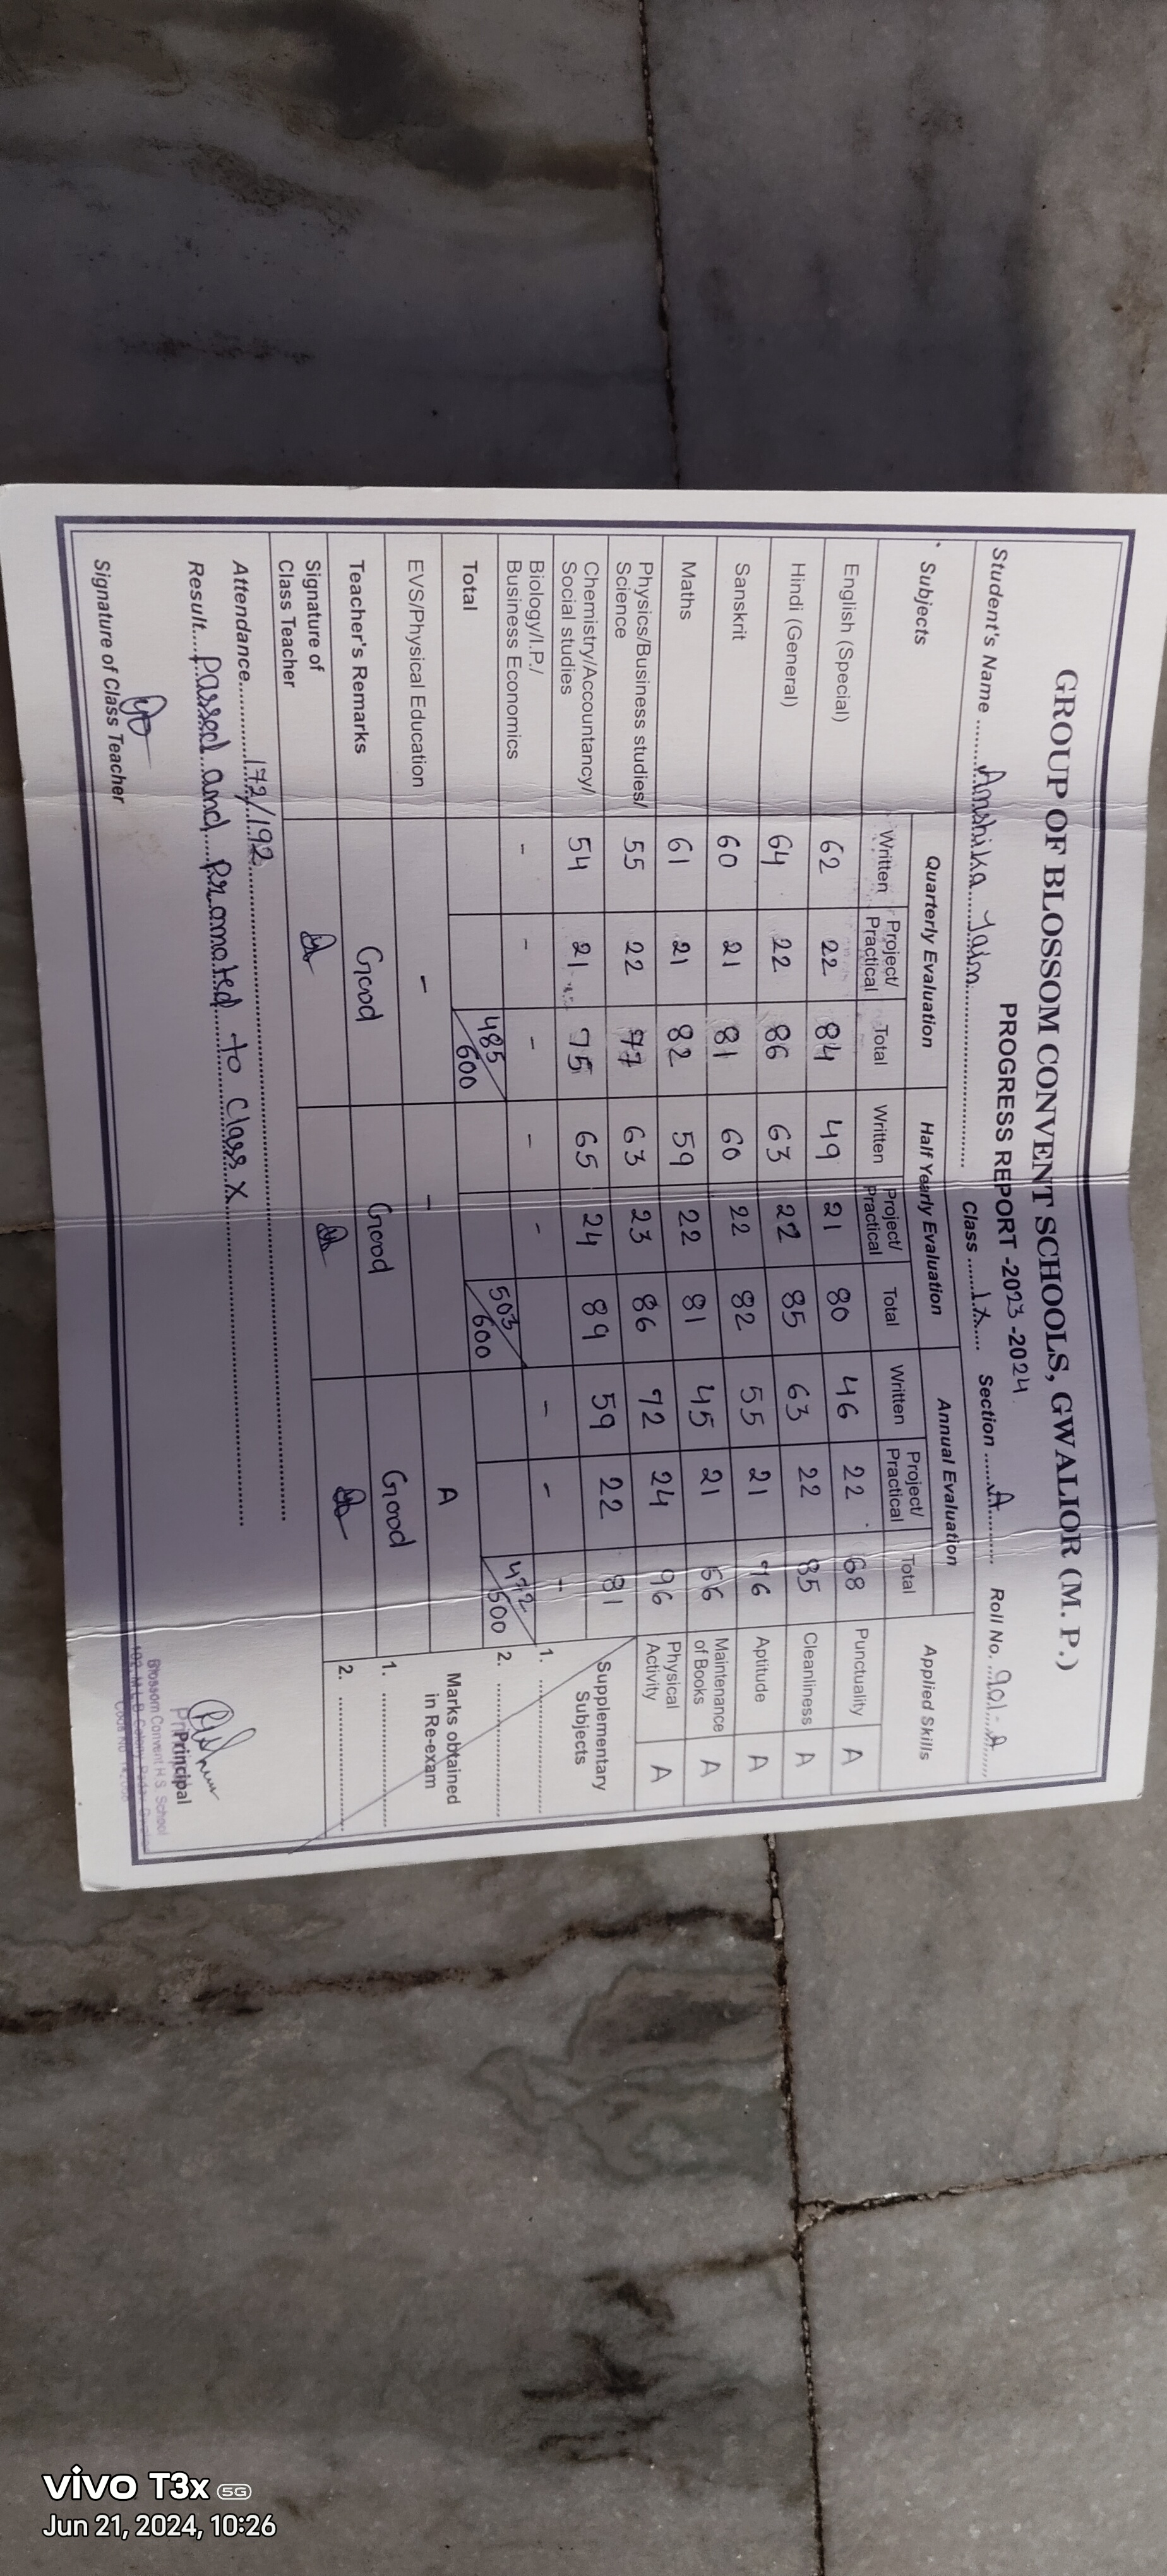 GROUP OF BLOSSOM CONVENT SCHOOLS, GWALIOR (M. P.)
PROGRESS REPORT -2023-2024
Student's Name ..... Anshika Jain ..... Class ..... IX ..... Section ..... A ..... Roll No. ... 901-A .....
Subjects Quarterly Evaluation Half Yearly Evaluation Annual Evaluation Applied Skills
Written Project/Practical Total Written Project/Practical Total Written Project/Practical Total
English (Special) 62 22 84 49 21 80 46 22 68 Punctuality A
Hindi (General) 64 22 86 63 22 85 63 22 85 Cleanliness A
Sanskrit 60 21 81 60 22 82 55 21 76 Aptitude A
Maths 61 21 82 59 22 81 45 21 66 Maintenance of Books A
Physics/Business studies/Science 55 22 77 63 23 86 72 24 96 Physical Activity A
Chemistry/Accountancy/Social studies 54 21 75 65 24 89 59 22 81 Supplementary Subjects
Biology/I.P./Business Economics - - - - - - - - 1. ..........
Total 485/600 503/600 472/600 2. ..........
EVS/Physical Education - - A Marks obtained in Re-exam
Teacher's Remarks Good Good Good 1. ..........
Signature of Class Teacher 2. ..........
Attendance..... 172/192 .....
Result.... Passed and Promoted to Class X .....
Signature of Class Teacher Principal
Blossom Convent H.S. School
vivo T3x 5G
Jun 21, 2024, 10:26